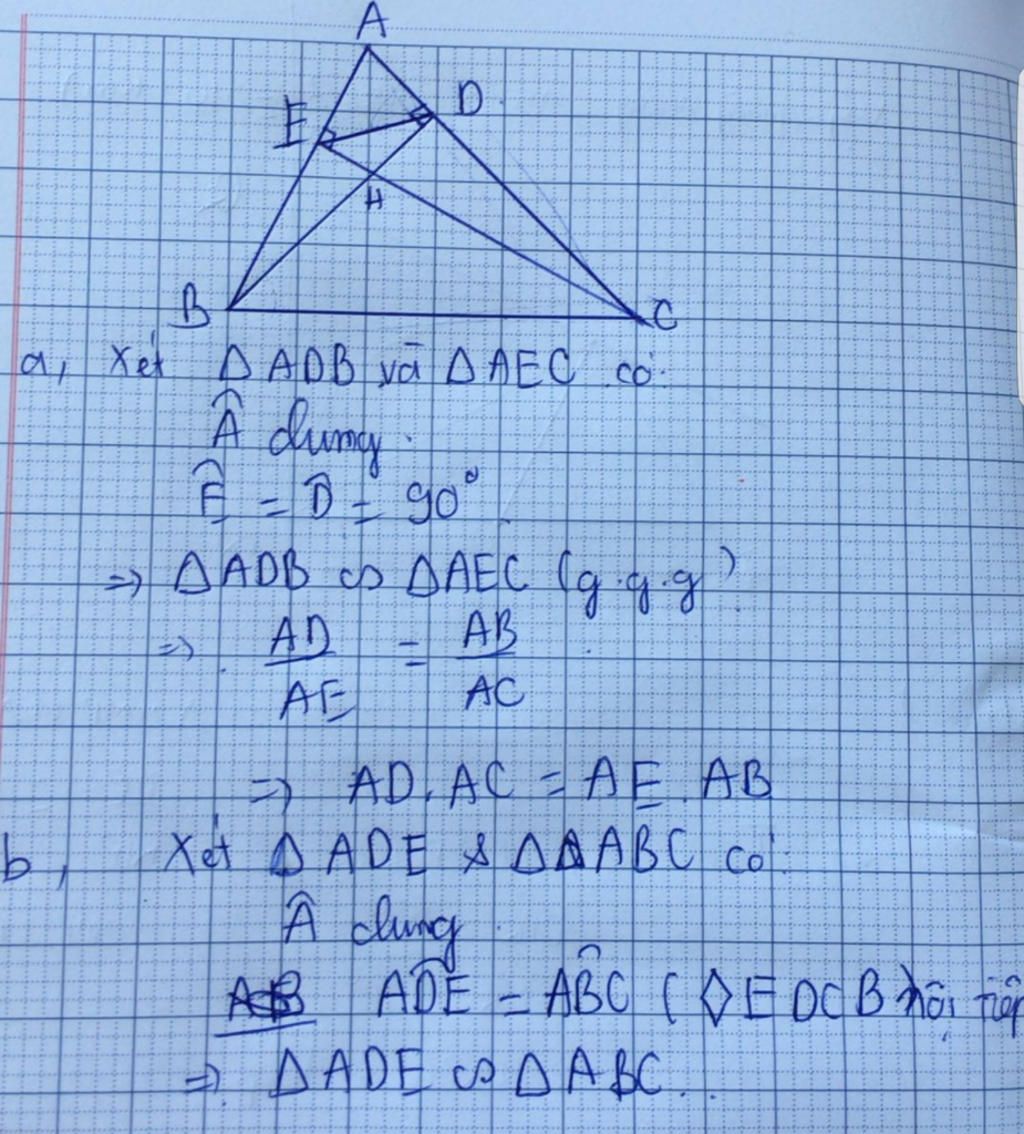 A
E D
H
B C
a, Xét △ADB và △AEC có:
Â chung.
Ê = D̂ = 90°
⇒ △ADB ∽ △AEC (g.g.g)
⇒ AD/AE = AB/AC
⇒ AD.AC = AE.AB
b, Xét △ADE & △ABC có:
Â chung.
ADE = ABC (◇EDCB nội tiếp
⇒ △ADE ∽ △ABC.